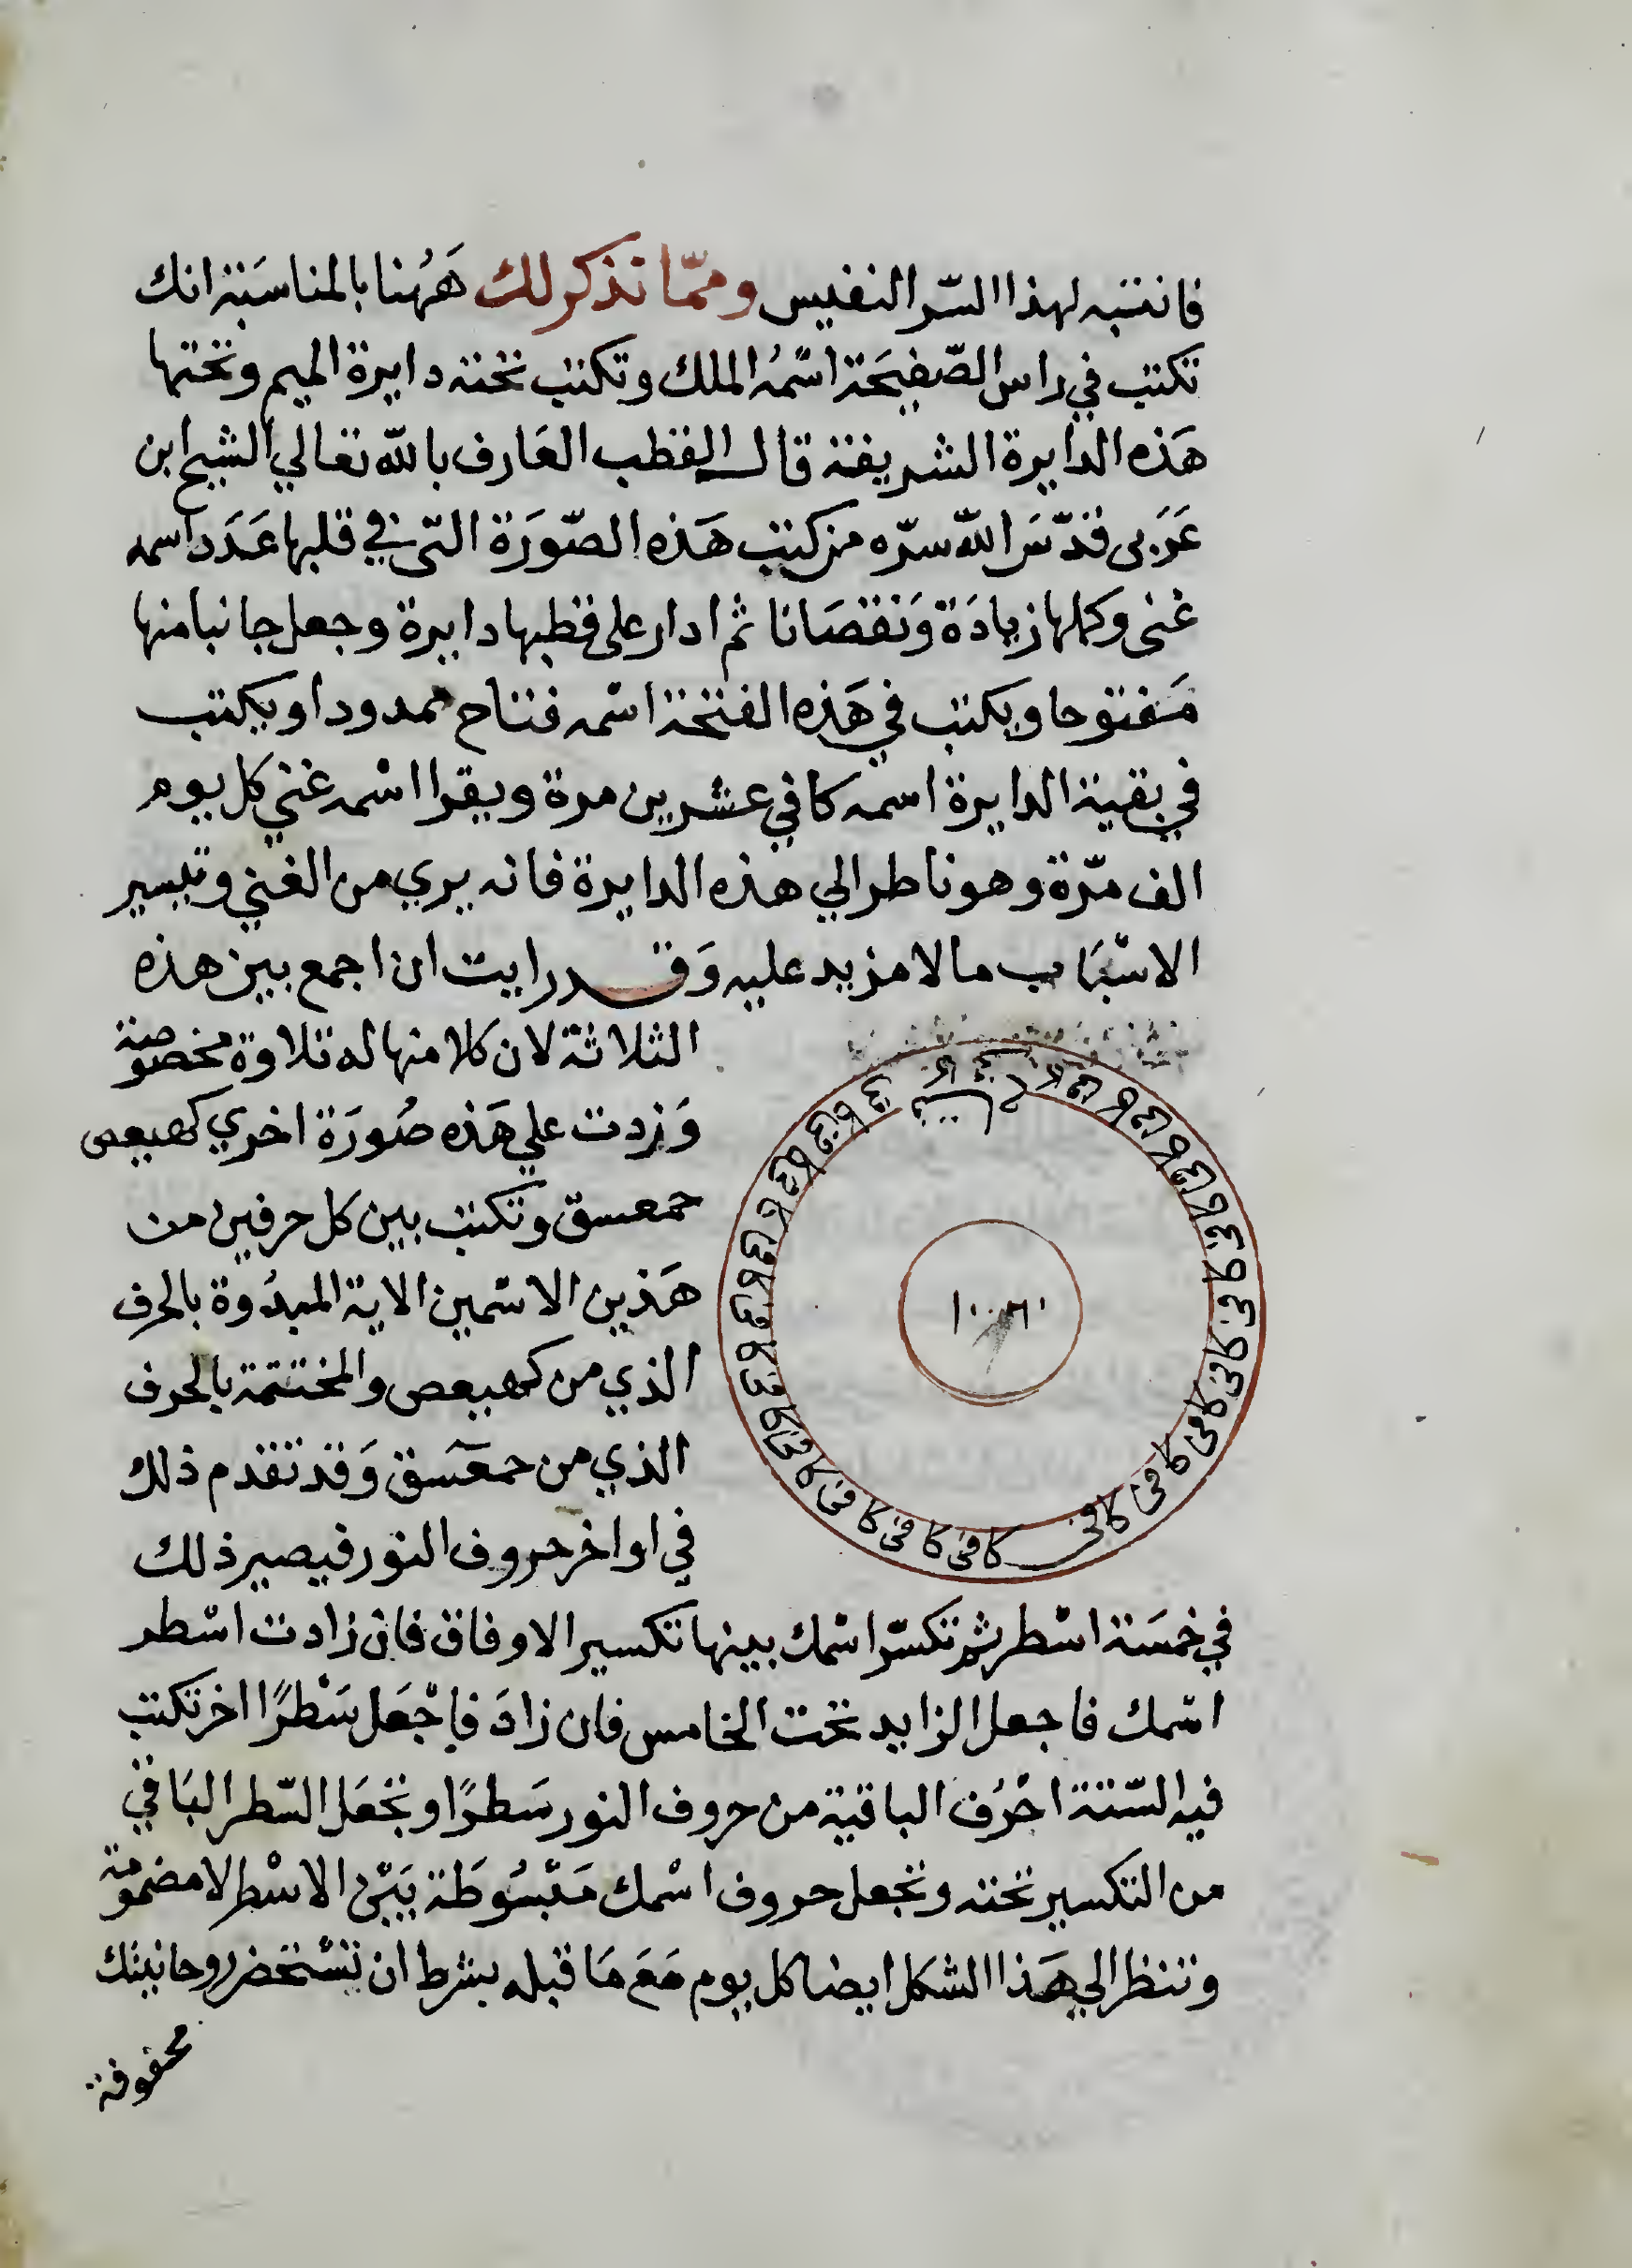 فانتبه لهذا السّر النفيس ومّما نذكر لك هَهُنا بالمناسَبة انك
تكتب في راس الصّفيحَة اسْمُه الملك وتكتب تحته دايرة الميم وتحتها
هَذه الدايرة الشريفة قال القطب العَارف بالله تعالي الشيخ ابن
عَرَبى قدّسَ الله سرّه من كتب هَذه الصّورَة التى في قلبها عَدَد اسمه
غنى وكملها زيادَة وَنقصَانا ثم ادار على قطبها دايرة وجعل جانبا منها
مَفتوحا ويكتب في هَذه الفتحة اسْمه فتاح ممدودا ويكتب
في بقية الدايرة اسمه كافي عشرين مرة ويقرا اسْمه غني كل يوم
الف مرّة وهو ناظر الي هذه الدايرة فانه يري من الغني وتيسير
الاسْبَاب ما لا مزيد عليه وَقد رايت ان اجمع بين هذه
الثلاثة لان كلا منها له تلاوة مخصوصة
وَزدت علي هَذه صُورَة اخري كهيعص
حمعسق وتكتب بين كل حرفين من
هَذين الاسْمين الاية المبدُوة بالحرف
الذي من كهيعص والمختتمة بالحرف
الذي من حمعسق وَقد تقدم ذلك
في اواخر حروف النور فيصير ذلك
في خمسَة اسْطر ثم تكسّر اسْمك بينها تكسير الاوفاق فان زادت اسْطر
اسْمك فاجعل الزايد تحت الخامس فان زادَ فاجْعَل سَطْرًا اخر تكتب
فيه السّتة احْرُف الباقية من حروف النور سَطرًا وتجْعَل السّطر البَاقي
من التكسير تحته وتجعل حروف اسْمك مَبْسُوطَة بَيْن الاسْطر لا مضمومة
وتنظر الي هَذا الشكل ايضا كل يوم مَعَ مَا قبله بشرط ان تسْتحضر روحانيتك
محفوفة
كافى كافى كافى كافى كافى كافى كافى كافى كافى كافى كافى كافى كافى كافى كافى كافى كافى كافى كافى كافى